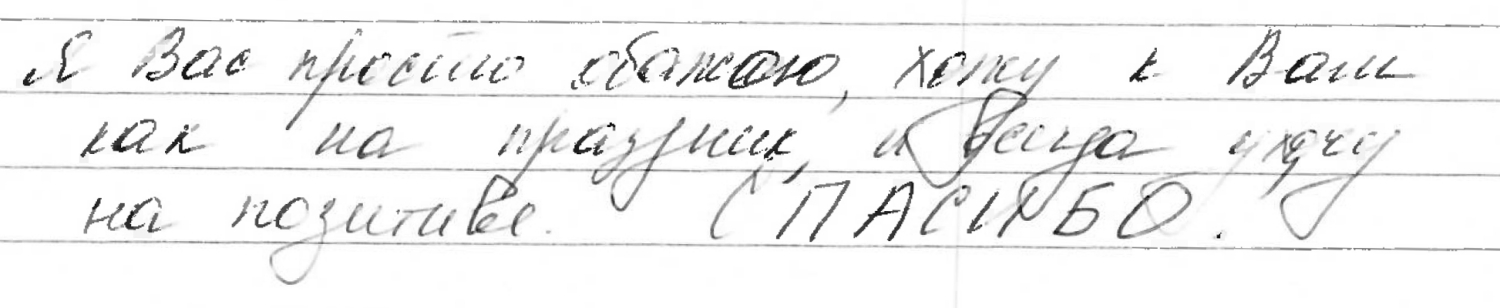 Я Вас просто обажаю, хожу к Вам
как на праздник, и всегда ухожу
на позитиве. СПАСИБО.